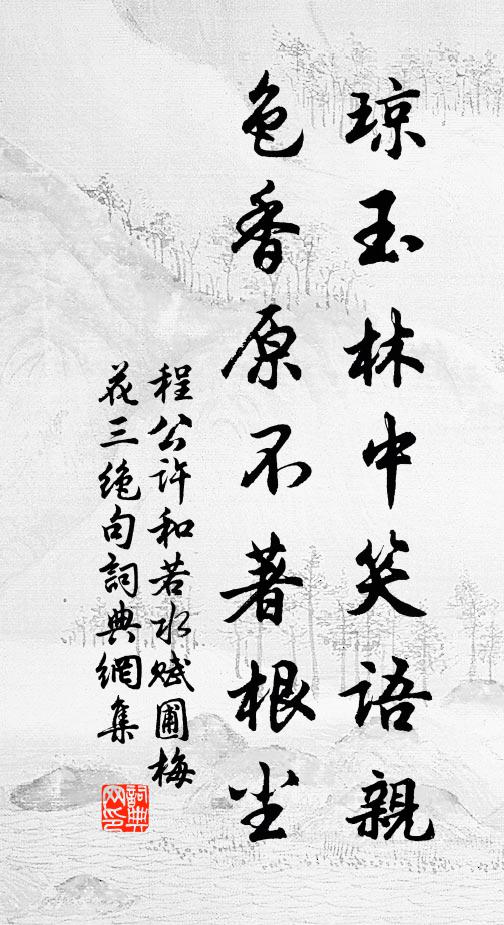 琼玉林中笑语親
色香原不著根尘
程公许和若水赋圃梅
花三绝句詞典網集
詞典